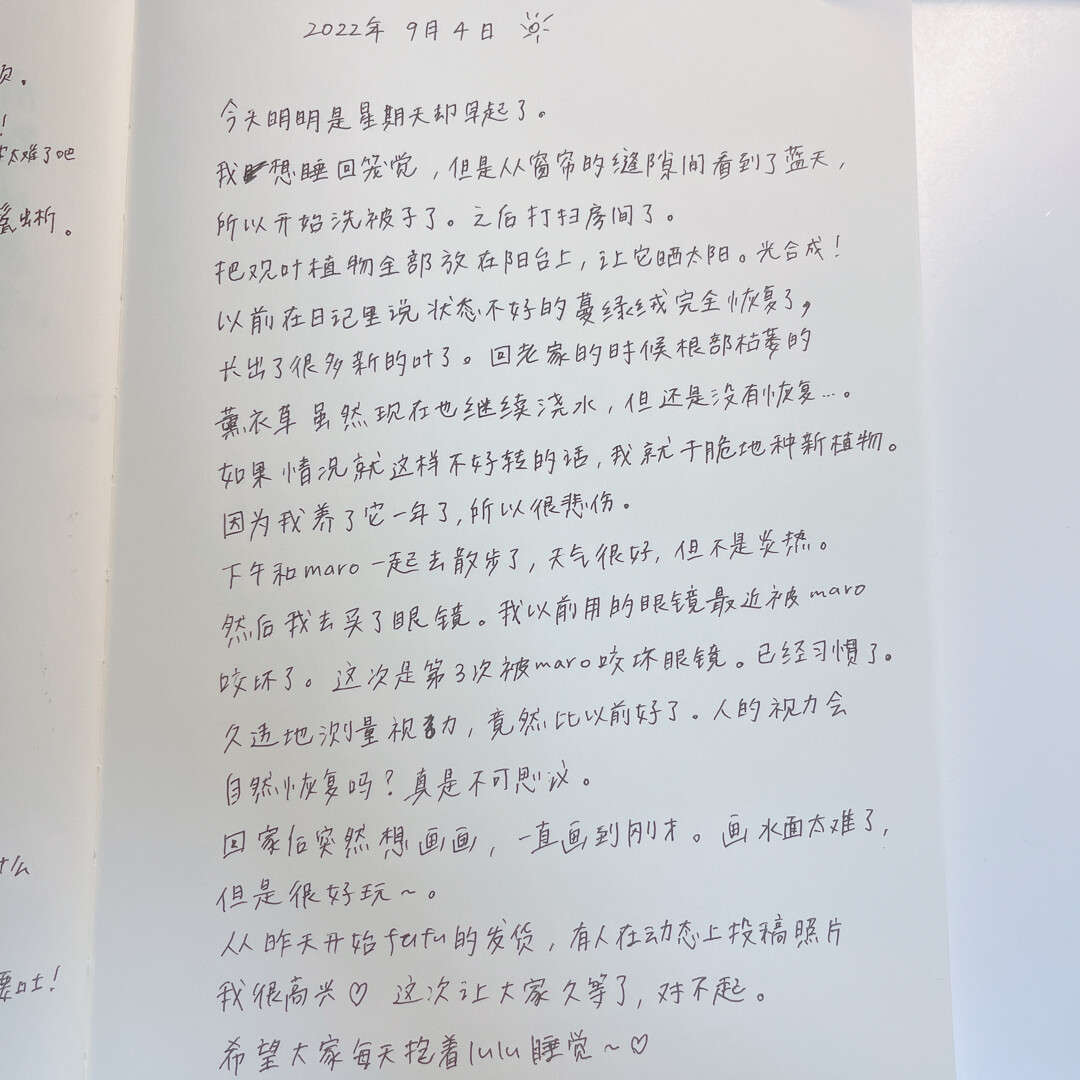 2022年 9月 4日
今天明明是星期天却早起了。
我想睡回笼觉，但是从窗帘的缝隙间看到了蓝天，
所以开始洗被子了。之后打扫房间了。
把观叶植物全部放在阳台上，让它晒太阳。光合成！
以前在日记里说状态不好的蔓绿绒完全恢复了，
长出了很多新的叶了。回老家的时候根部枯萎的
薰衣草虽然现在也继续浇水，但还是没有恢复…。
如果情况就这样不好转的话，我就干脆地种新植物。
因为我养了它一年了，所以很悲伤。
下午和maro一起去散步了，天气很好，但不是炎热。
然后我去买了眼镜。我以前用的眼镜最近被maro
咬坏了。这次是第3次被maro咬坏眼镜。已经习惯了。
久违地测量视力，竟然比以前好了。人的视力会
自然恢复吗？真是不可思议。
回家后突然想画画，一直画到刚才。画水面太难了，
但是很好玩～。
从昨天开始fufu的发货，有人在动态上投稿照片
我很高兴♡ 这次让大家久等了，对不起。
希望大家每天抱着lulu睡觉～♡
页。
！
太难了吧
出析。
什么
要吐！